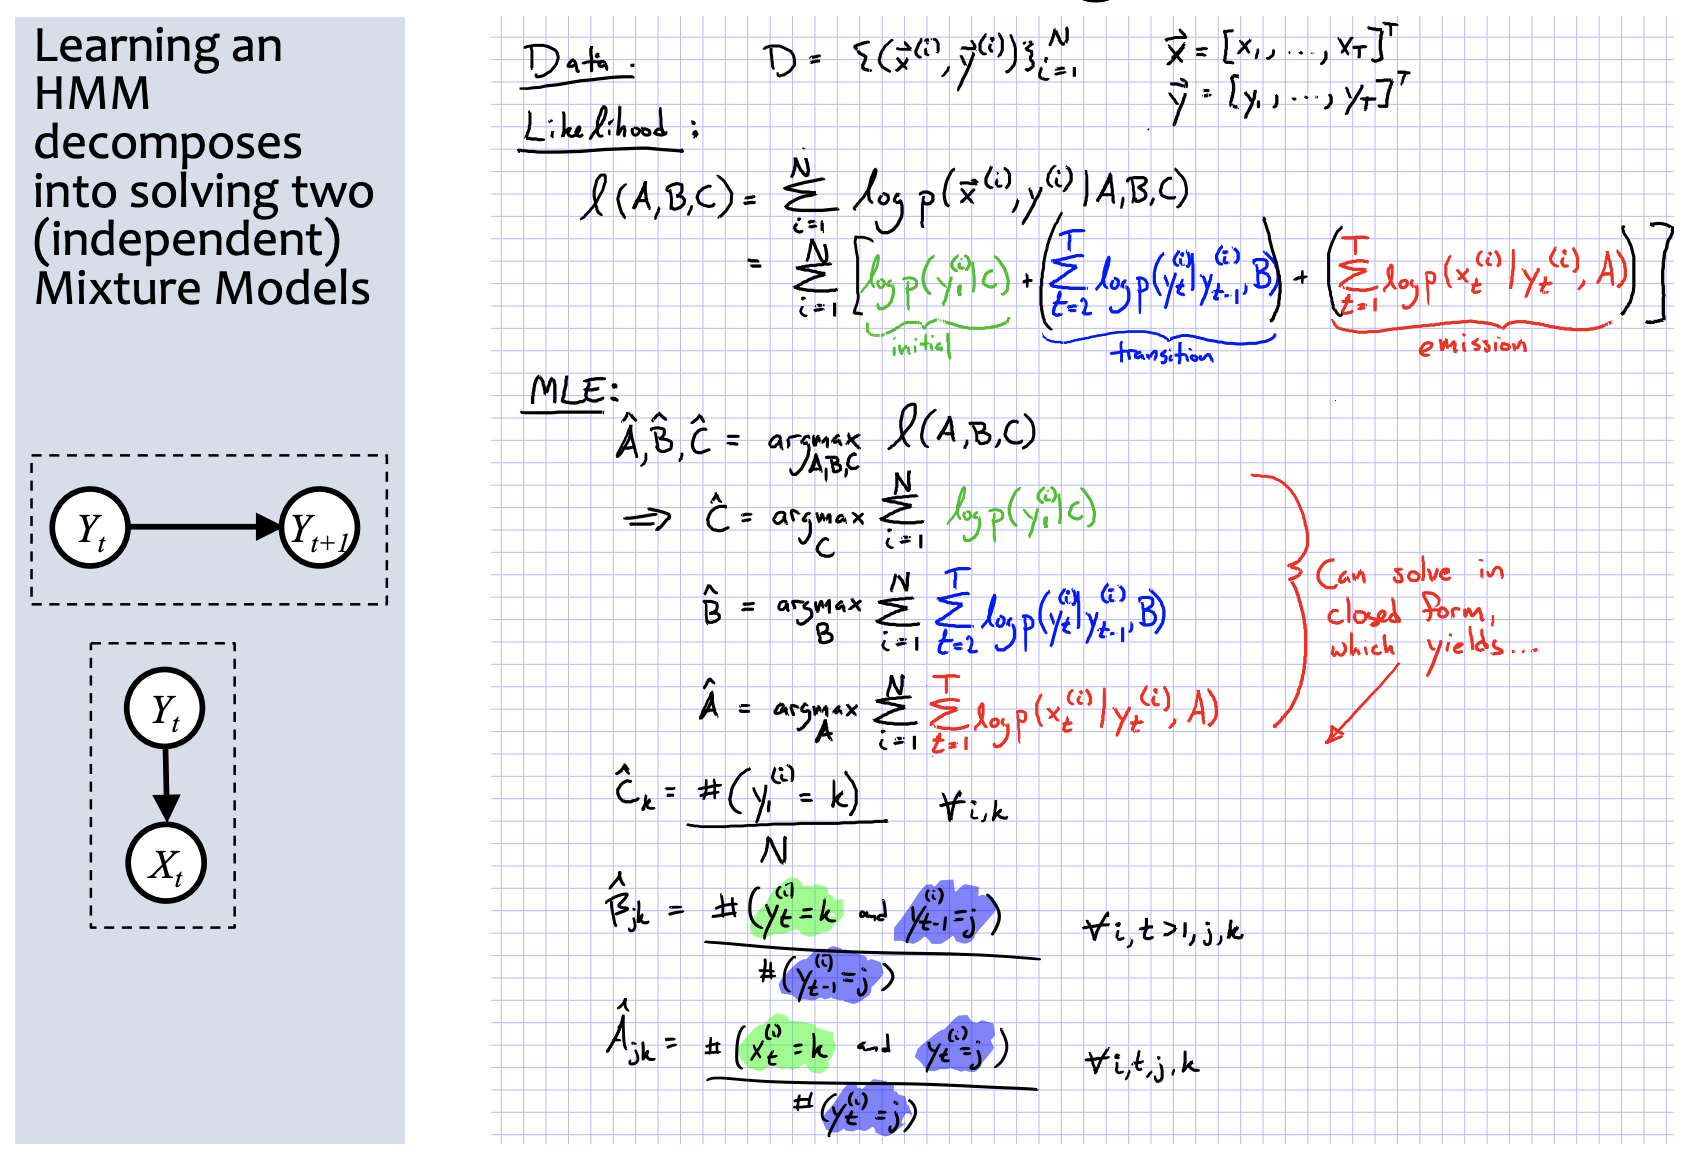 Learning an
HMM
decomposes
into solving two
(independent)
Mixture Models
Y_t
Y_{t+1}
Y_t
X_t
Data: D = {(x⃗^(i), y⃗^(i))}_{i=1}^N x⃗ = [x_1, ..., x_T]^T
y⃗ = [y_1, ..., y_T]^T
Likelihood:
ℓ(A,B,C) = Σ_{i=1}^N log p(x⃗^(i), y^(i) | A,B,C)
= Σ_{i=1}^N [log p(y_1^(i) | C) + (Σ_{t=2}^T log p(y_t^(i) | y_{t-1}^(i), B)) + (Σ_{t=1}^T log p(x_t^(i) | y_t^(i), A))]
initial transition emission
MLE:
Â, B̂, Ĉ = argmax_{A,B,C} ℓ(A,B,C)
⇒ Ĉ = argmax_C Σ_{i=1}^N log p(y_1^(i) | C)
B̂ = argmax_B Σ_{i=1}^N Σ_{t=2}^T log p(y_t^(i) | y_{t-1}^(i), B)
Â = argmax_A Σ_{i=1}^N Σ_{t=1}^T log p(x_t^(i) | y_t^(i), A)
Can solve in
closed form,
which yields...
Ĉ_k = #(y_1^(i) = k) / N ∀i,k
B̂_jk = #(y_t^(i) = k and y_{t-1}^(i) = j) / #(y_{t-1}^(i) = j) ∀i,t>1,j,k
Â_jk = #(x_t^(i) = k and y_t^(i) = j) / #(y_t^(i) = j) ∀i,t,j,k